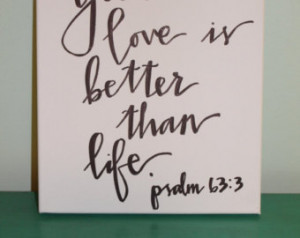 love is
better
than
life.
psalm 63:3